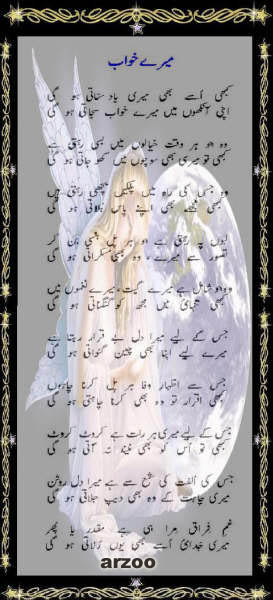 میرے خواب
کبھی اُسے بھی میری یاد ستاتی ہو گی
اپنی آنکھوں میں میرے خواب سجاتی ہو گی
وہ جو ہر وقت خیالوں میں بسی رہتی ہے
کبھی تو میری بھی سوچوں میں کھو جاتی ہو گی
وہ جس کی راہ میں پلکیں بچھی رہتی ہیں
کبھی مجھے بھی اپنے پاس بلاتی ہو گی
لبوں پہ رہتی ہے جو ہر پل ہنسی بن کر
تصور سے میرے وہ بھی مسکراتی ہو گی
وہ جو شامل ہے میرے گیت میرے نغموں میں
کبھی تنہائی میں مجھ کو گنگناتی ہو گی
جس کے لیے میرا دل بے قرار رہتا ہے
میرے لیے اپنا بھی چین گنواتی ہو گی
جس سے اظہار وفا ہر پل کرنا چاہوں
کبھی اقرار تو وہ بھی کرنا چاہتی ہو گی
جس کے لیے میری ہر رات ہے کروٹ کروٹ
کبھی تو اُس کو بھی نیند نہ آتی ہو گی
جس کی اُلفت کی شمع سے ہے میرا دل روشن
میری چاہت کے وہ بھی دیپ جلاتی ہو گی
غمِ فراق میرا ہی ہے مقدر یا پھر
میری جدائی اُسے بھی یوں رُلاتی ہو گی
arzoo